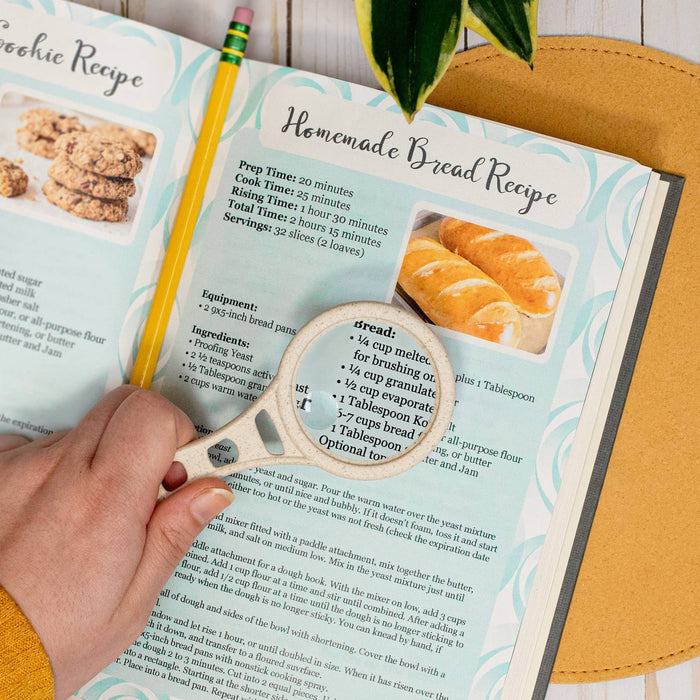 Cookie Recipe
ted sugar
ted milk
osher salt
our, or all-purpose flour
rtening, or butter
utter and Jam
the expiration
Homemade Bread Recipe
Prep Time: 20 minutes
Cook Time: 25 minutes
Rising Time: 1 hour 30 minutes
Total Time: 2 hours 15 minutes
Servings: 32 slices (2 loaves)
Equipment:
• 2 9x5-inch bread pans
Ingredients:
• Proofing Yeast
• 2 ½ teaspoons activ
• ½ Tablespoon gran
• 2 cups warm wate
Bread:
• ¼ cup melte
plus 1 Tablespoon
for brushing
• ¼ cup granulate
• ½ cup evaporate
• 1 Tablespoon Ko
5-7 cups bread
r all-purpose flour
1 Tablespoon
g, or butter
Optional to
tter and Jam
east
owl, ad
yeast and sugar. Pour the warm water over the yeast mixture
inutes, or until nice and bubbly. If it doesn't foam, toss it and start
either too hot or the yeast was not fresh (check the expiration date
nd mixer fitted with a paddle attachment, mix together the butter,
milk, and salt on medium low. Mix in the yeast mixture just until
ddle attachment for a dough hook. With the mixer on low, add 3 cups
bined. Add 1 cup flour at a time and stir until combined. After adding a
flour, add 1/2 cup flour at a time until the dough is no longer sticking to
ready when the dough is no longer sticky. You can knead by hand, if
all of dough and sides of the bowl with shortening. Cover the bowl with a
indow and let rise 1 hour, or until doubled in size. When it has risen over the
ch it down, and transfer to a floured survface.
x5-inch bread pans with nonstick cooking spray.
e dough 2 to 3 minutes. Cut into 2 equal pieces.
into a rectangle. Starting at the shorter side
. Place into a bread pan. Repeat wit